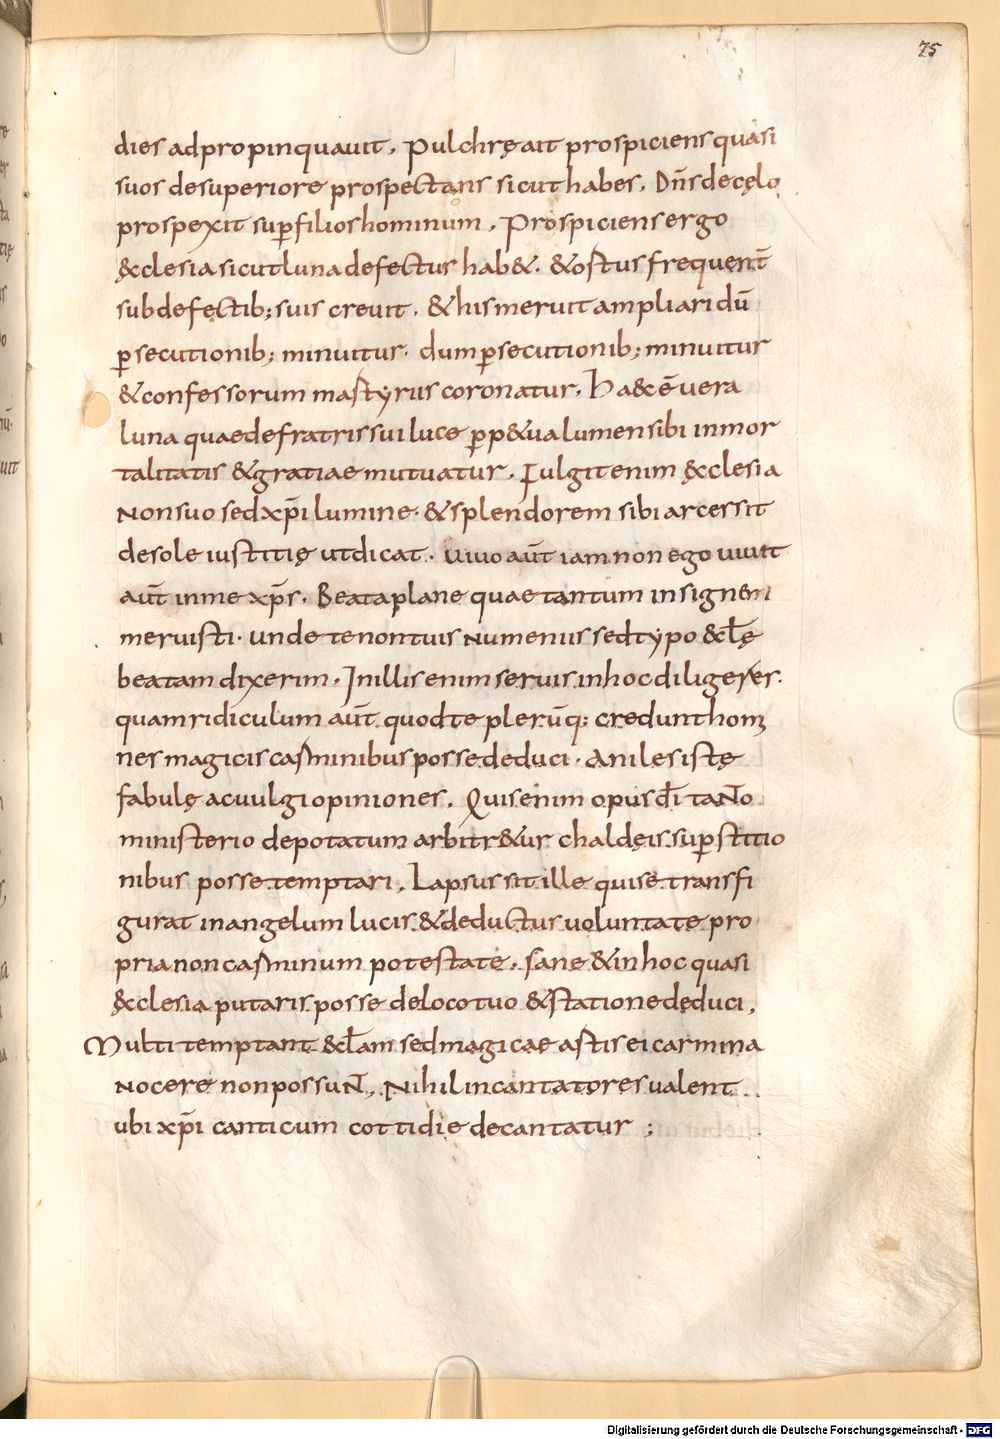 75
dies adpropinquauit. Pulchrę ait prospiciens quasi
suos de superiore prospectans sicut habes. Dn̄s de cęlo
prospexit sup̱ filios hominum. Prospiciens ergo
ęcclesia sicut luna defectus hab&. & ortus frequent̄
sub defectib; suis creuit. & his meruit ampliari dū
p̱secutionib; minuitur. dum p̱secutionib; minuitur
& confessorum martyriis coronatur. Ha&c ē uera
luna quae de fratris sui luce p̱p&ua lumen sibi inmor
talitatis & gratiae mutuatur. Fulgit enim ęcclesia
non suo sed xp̄i lumine. & splendorem sibi arcessit
de sole iustitię ut dicat. uiuo aūt iam non ego uiuit
aūt in me xp̄s. Beata plane quae tantum insignem
meruisti. unde te non tuis numeniis sed typo &clę̄
beatam dixerim. In illis enim seruis in hoc diligeres.
quam ridiculum aūt quod te plerūq; credunt homi
nes magicis carminibus posse deduci. Aniles istę
fabulę ac uulgi opiniones. Quis enim opus dī tanto
ministerio depotatum arbitr&ur chaldęis sup̱stitio
nibus posse temptari. Lapsus sit ille qui se transfi
gurat in angelum lucis & deductus uoluntate pro
pria non carminum potestate. Sane & in hoc quasi
ęcclesia putaris posse de loco tuo & statione deduci.
Multi temptant &cl̄am sed magicae artis ei carmina
nocere non possunt. Nihil incantatores ualent
ubi xp̄i canticum cottidie decantatur ;
Digitalisierung gefördert durch die Deutsche Forschungsgemeinschaft - DFG